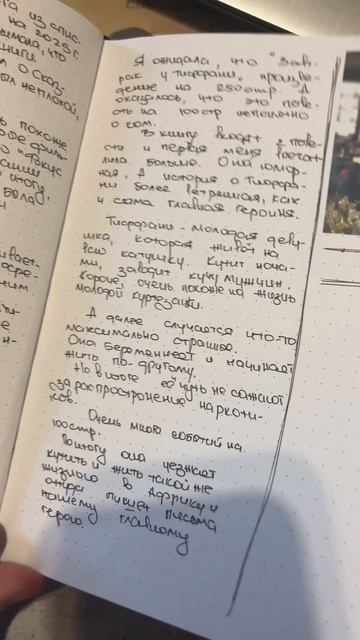 га из спис.
на 2025 г.
умала, что
ниги.
м О сказ.
был неплохой,
похоже
итогу.
Я ожидала, что "Завт-
рак у Тиффани" произве-
дение на 250 стр. А
оказалось, что это пове-
сть на 100 стр неполного
о ком.
В книгу входят 2 пове-
сти и первая меня впечат-
лила больше. Она
А история о Тиффа-
ни более ветренная, как
и сама главная героиня.
Тиффани - молодая деву-
шка, которая живёт на
всю катушку. Кутит ноча-
ми, заводит кучу мужчин.
Короче, очень похоже на жизнь
молодой куртизанки.
А далее случается что-то
максимально страшное.
Она беременеет и начинает
жить по-другому.
Но в итоге её чуть не сажают
за распространение наркоти-
ков.
Очень много событий на
100 стр.
В итогу она уезжает
кутить и жить такой же
жизнью в Африку и
оттуда пишет письма
нашему главному
герою.